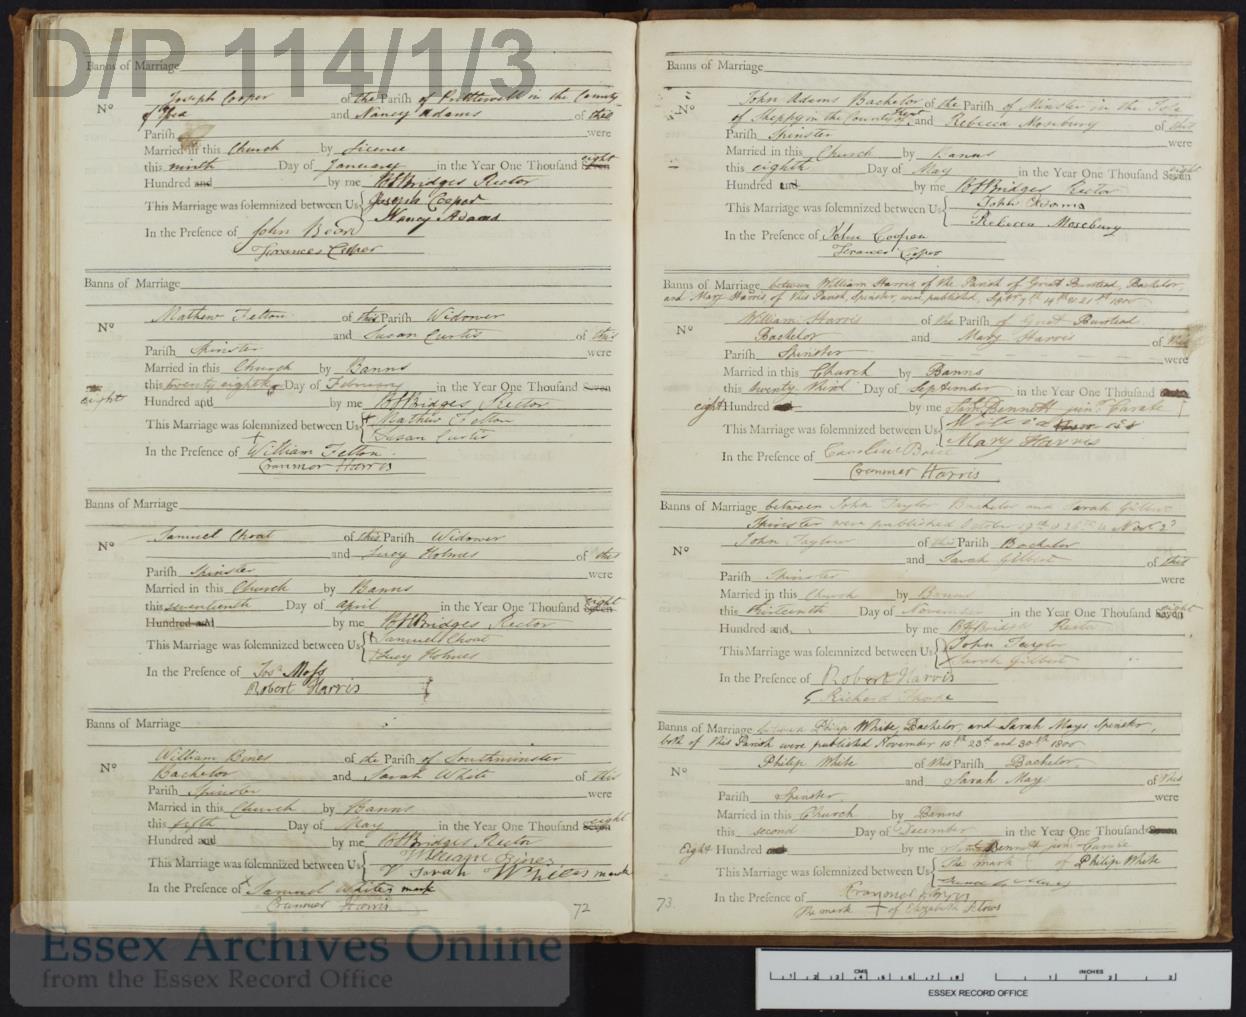 D/P 114/1/3
Banns of Marriage
No Joseph Cooper of the Parish of Prittlewell in the County
of Essex and Nancy Adams of this
Parish were
Married in this Church by Licence
this ninth Day of January in the Year One Thousand Seven eight
Hundred and by me Bridges Rector
This Marriage was solemnized between Us Joseph Cooper
Nancy Adams
In the Presence of John Beard
Frances Cooper
Banns of Marriage
No Mathew Felton of this Parish Widower
and Susan Curtis of this
Parish Spinster were
Married in this Church by Banns
this twenty eighth Day of February in the Year One Thousand Seven
eight Hundred and by me Bridges Rector
This Marriage was solemnized between Us + Mathew Felton
Susan Curtis
In the Presence of + William Felton
Cranmer Harris
Banns of Marriage
No Samuel Choat of this Parish Widower
and Lucy Holmes of this
Parish Spinster were
Married in this Church by Banns
this seventeenth Day of April in the Year One Thousand Seven eight
Hundred and by me Bridges Rector
This Marriage was solemnized between Us Samuel Choat
Lucy Holmes
In the Presence of Jos. Moss
Robert Harris
Banns of Marriage
No William Bines of the Parish of Southminster
Bachelor and Sarah White of this
Parish Spinster were
Married in this Church by Banns
this fifth Day of May in the Year One Thousand Seven eight
Hundred and by me Bridges Rector
This Marriage was solemnized between Us William Bines
Sarah White mark
In the Presence of X Samuel White mark
Cranmer Harris
72
Banns of Marriage
No John Adams Bachelor of the Parish of Minster in the Isle
of Sheppy in the County of Kent and Rebecca Mosebury of this
Parish Spinster were
Married in this Church by Banns
this eighth Day of May in the Year One Thousand Seven eight
Hundred and by me Bridges Rector
This Marriage was solemnized between Us John Adams
Rebecca Mosebury
In the Presence of John Cooper
Frances Cooper
Banns of Marriage between William Harris of the Parish of Great Burstead, Bachelor,
and Mary Harris of this Parish, Spinster, were published, Septr 7th 14th & 21st 1800
No William Harris of the Parish of Great Burstead
Bachelor and Mary Harris of this
Parish Spinster were
Married in this Church by Banns
this twenty third Day of September in the Year One Thousand
eight Hundred by me Saml Bennett junr Curate
This Marriage was solemnized between Us
Mary Harris
In the Presence of Caroline
Cranmer Harris
Banns of Marriage between John Taylor Bachelor and Sarah Gilbert
Spinster were published October 19th & 26th & Novr 2d
No John Taylor of this Parish Bachelor
and Sarah Gilbert of this
Parish Spinster were
Married in this Church by Banns
this thirteenth Day of November in the Year One Thousand Seven eight
Hundred and by me Bridges Rector
This Marriage was solemnized between Us John Taylor
Sarah Gilbert
In the Presence of Robert Harris
Richard Thorpe
Banns of Marriage between Philip White, Bachelor, and Sarah Mays Spinster,
both of this Parish were published November 16th 23d and 30th 1800
No Philip White of this Parish Bachelor,
and Sarah May of this
Parish Spinster. were
Married in this Church by Banns
this second Day of December in the Year One Thousand Seven
Eight Hundred by me Saml Bennett junr Curate
This Marriage was solemnized between Us The mark of Philip White
In the Presence of Cranmer Harris
The mark + of Elizabeth
73
Essex Archives Online
from the Essex Record Office
CMS
1 2 3 4 5 6 7 8
INCHES
1 2
ESSEX RECORD OFFICE